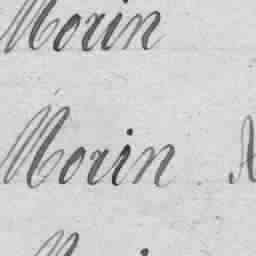 Morin
Morin